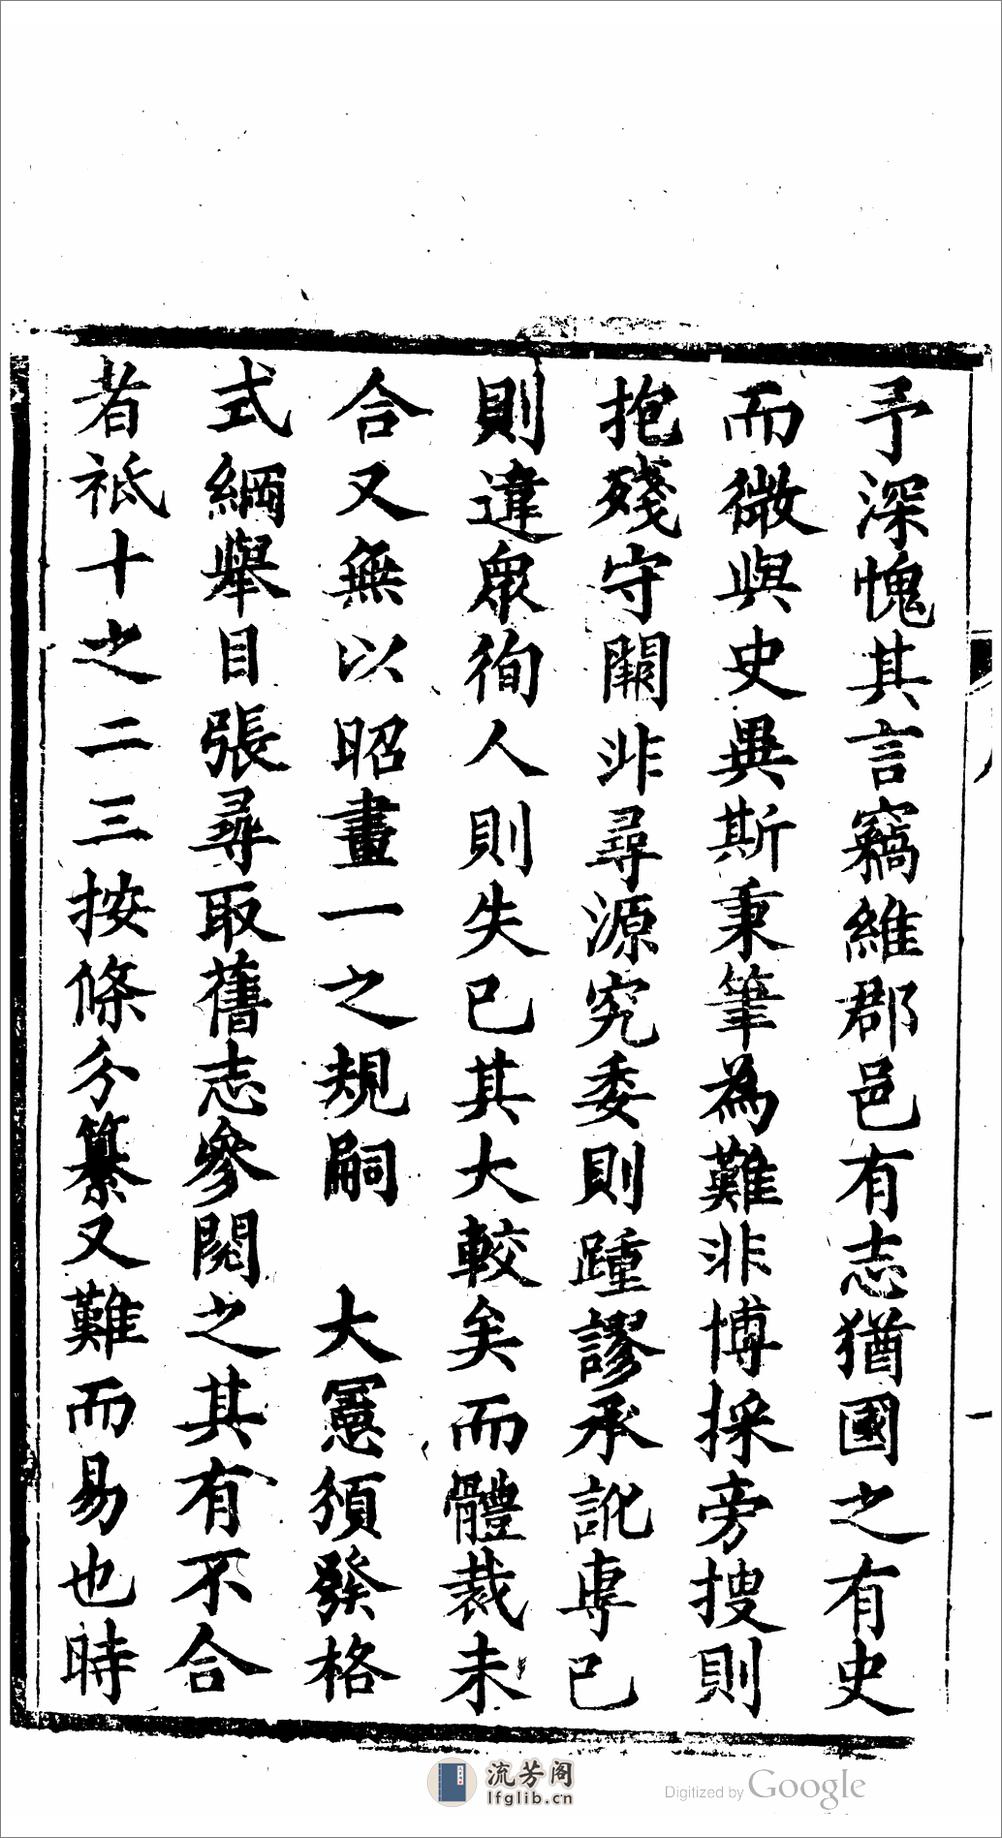 予深愧其言竊維郡邑有志猶國之有史
而微與史異斯秉筆為難非博採旁搜則
抱殘守闕非尋源究委則踵謬承訛專己
則違衆徇人則失己其大較矣而體裁未
合又無以昭畫一之規嗣　大憲頒發格
式綱舉目張尋取舊志參閱之其有不合
者祗十之二三按條分纂又難而易也時
流芳阁
lfglib.cn
Digitized by Google